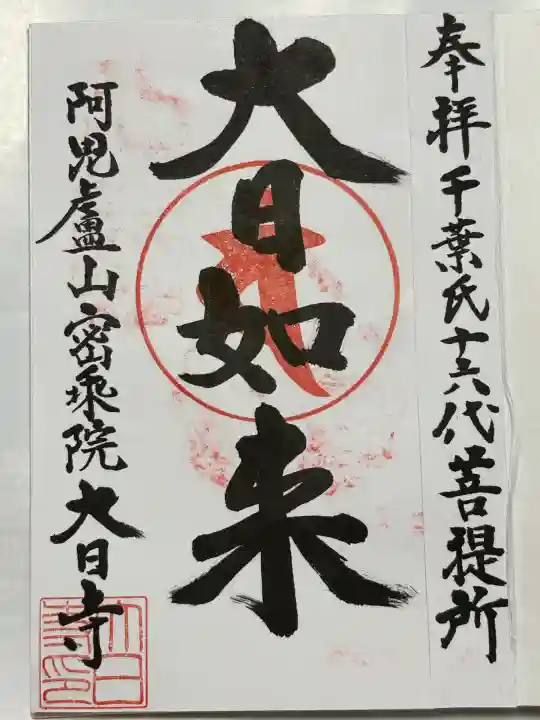 奉拝千葉氏十六代菩提所
大日如来
阿毘盧山密乗院大日寺
大日寺印